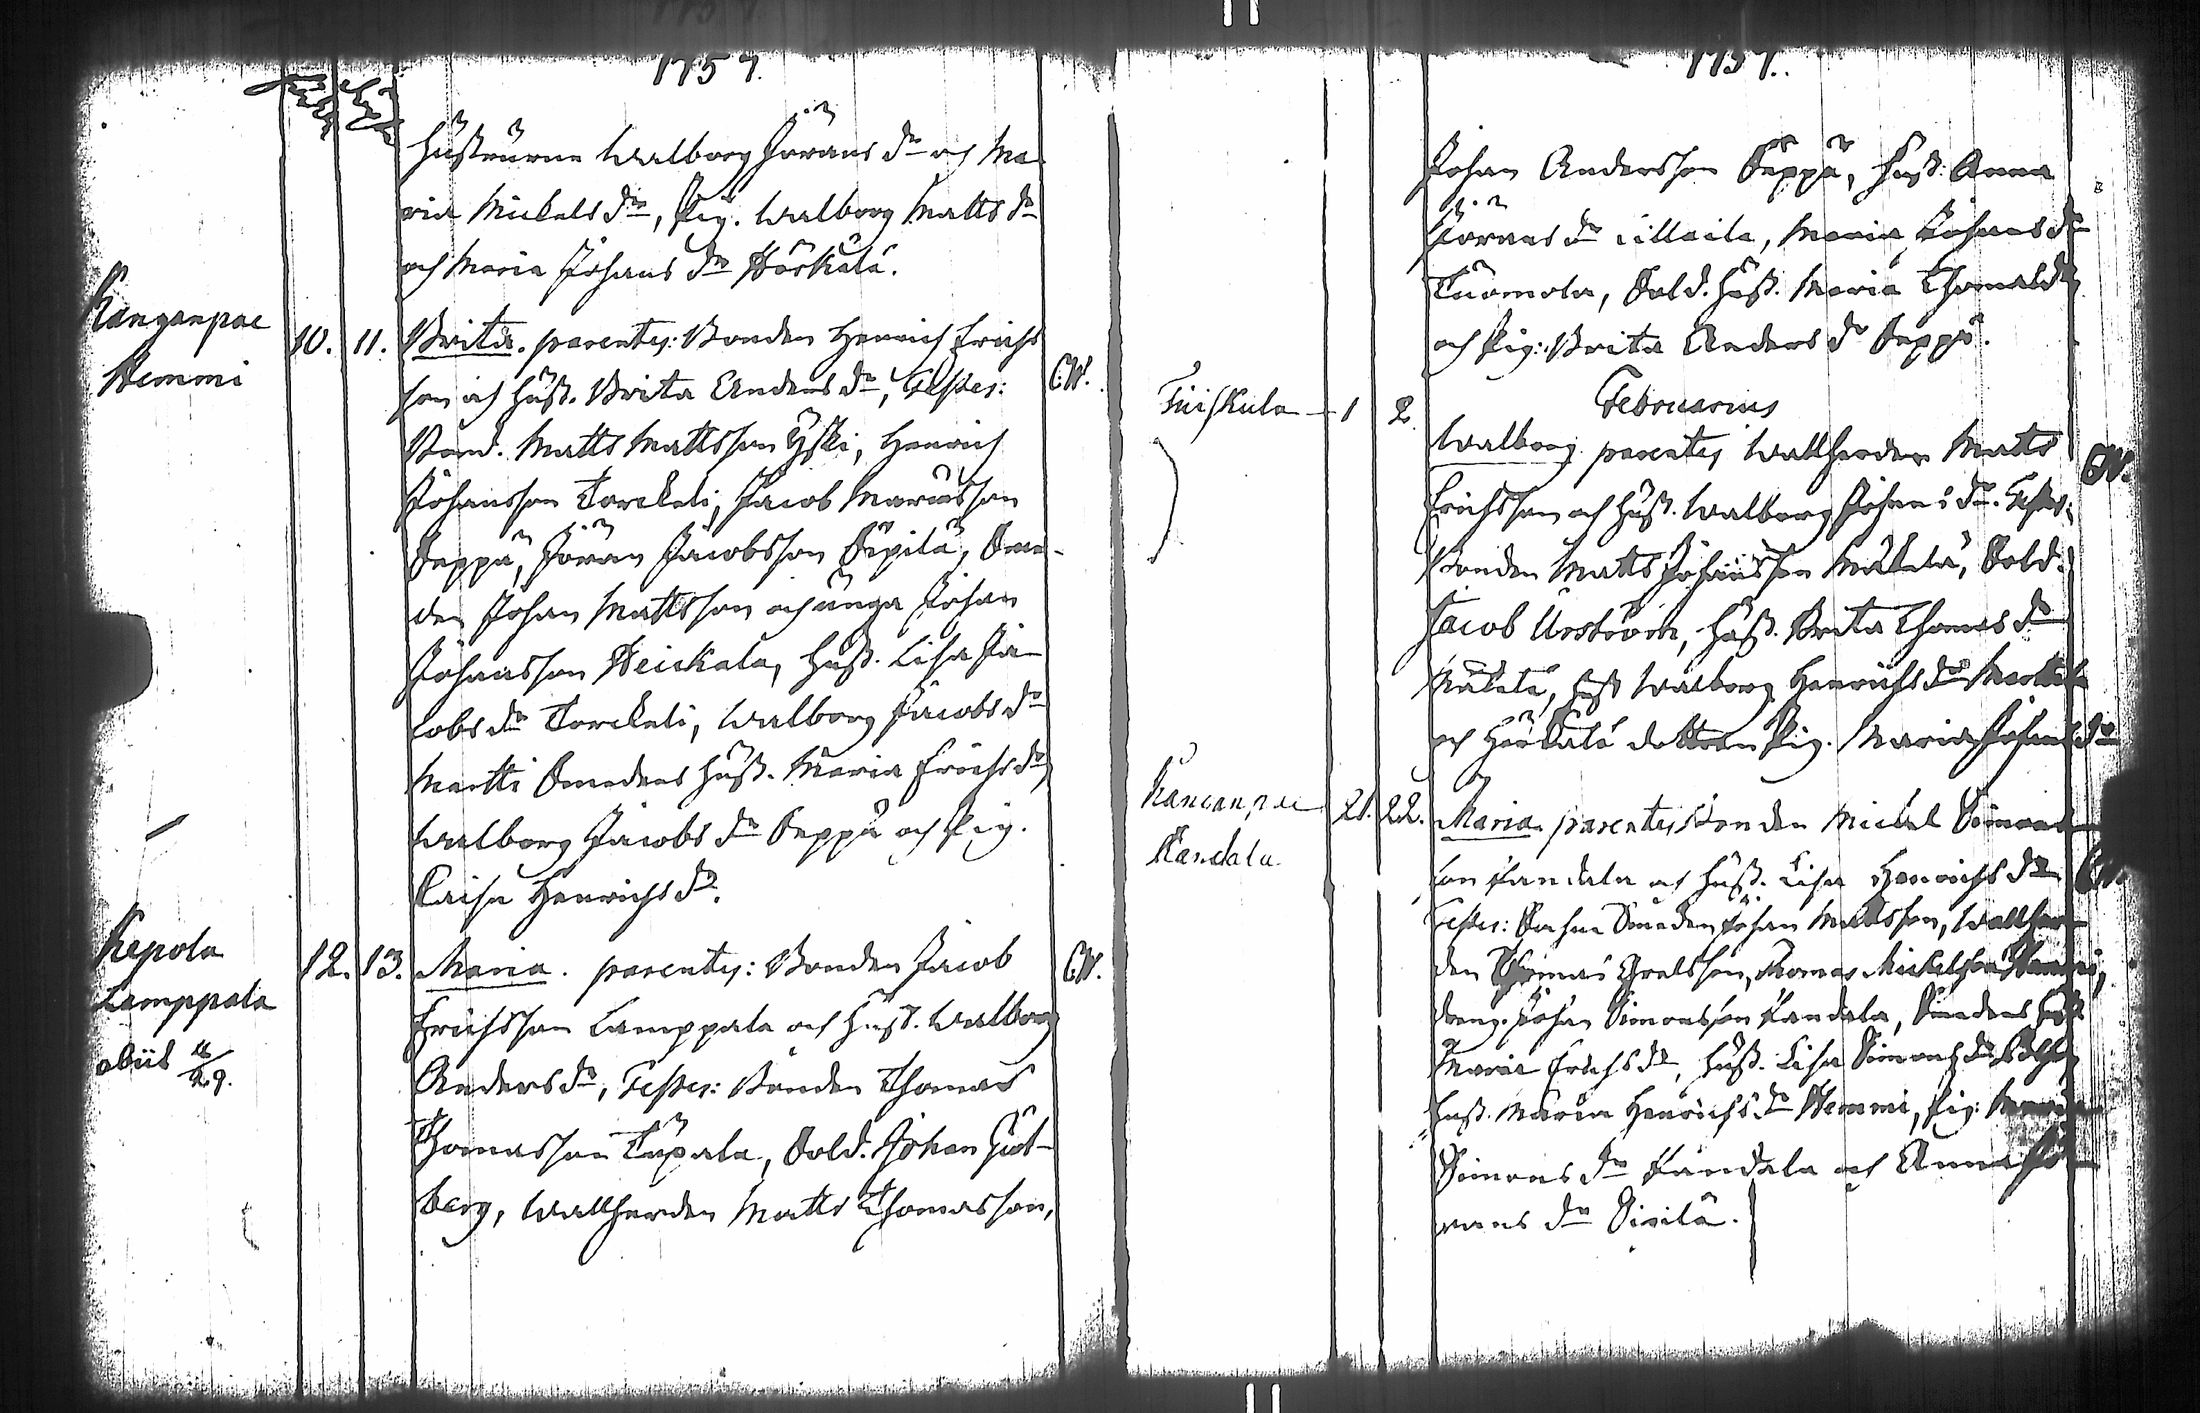 1757.
Hustrurne Walborg Jörans dr och Ma-
ria Mickels dr, Pig. Walborg Matts dr
och Maria Johans dr Härkälä.
Kanganpae
Hemmi
10. 11. Brita. parentes: Bonden Henrich Erichs
son och hust. Brita Anders dr, Testes: C.W.
Bond. Matts Mattsson Yski, Henrich
Johansson Torckeli, Jacob Marcusson
Seppä, Jöran Jacobsson Sipilä, Sme-
den Johan Mattsson och unga Johan
Johansson Heickala, hust. Lisa Ja-
cobs dr Torckeli, Walborg Jacobs dr
Martti Smedens hust. Maria Erichs dr
Walborg Jacobs dr Seppä och Pig.
Caisa Henrichs dr.
Kepola
Lamppala
obiit
12. 13. Maria. parentes: Bonden Jacob C.W.
Erichsson Lamppala och Hust. Walborg
Anders dr, Testes: Bonden Thomas
Thomasson Tupala, Sold. Johan
berg, Wallherden Matts Thomasson,
1757.
Johan Andersson Seppä, hust: Anna
Jörans dr Cillaila, Maria Johans dr
Tuomola, Sold. hust. Maria Thomæ dr
och Pig: Brita Anders dr Seppä.
Februarius
Tuiskula 1 2 Walborg parentes Wallherden Matts C.W.
Erichsson och hust. Walborg Johans dr. Testes:
Bonden Matts Johansson Mäkelä, Sold.
Jacob Urström, hust. Brita Thomas dr
Mäkelä, hust Walborg Henrichs dr Martti
och Härkälä dottren Pig. Maria Johans dr
Kancanpae
Kandala
21. 22. Maria parentes Bonden Michel Simons
son Kandala och hust. Lisa Henrichs dr C.W.
Testes: Smeden Johan Mattsson, Wallher-
den Thomas Gralsson, Thomas Mickelson Hemmi,
dreng. Johan Simonsson Kandala, Smedens hust
Maria Erichs dr, hust. Lisa Simons dr
hust. Maria Henrichs dr Hemmi, Pig: Maria
Simons dr Kandala och Anna Jö-
rans dr Sipilä.